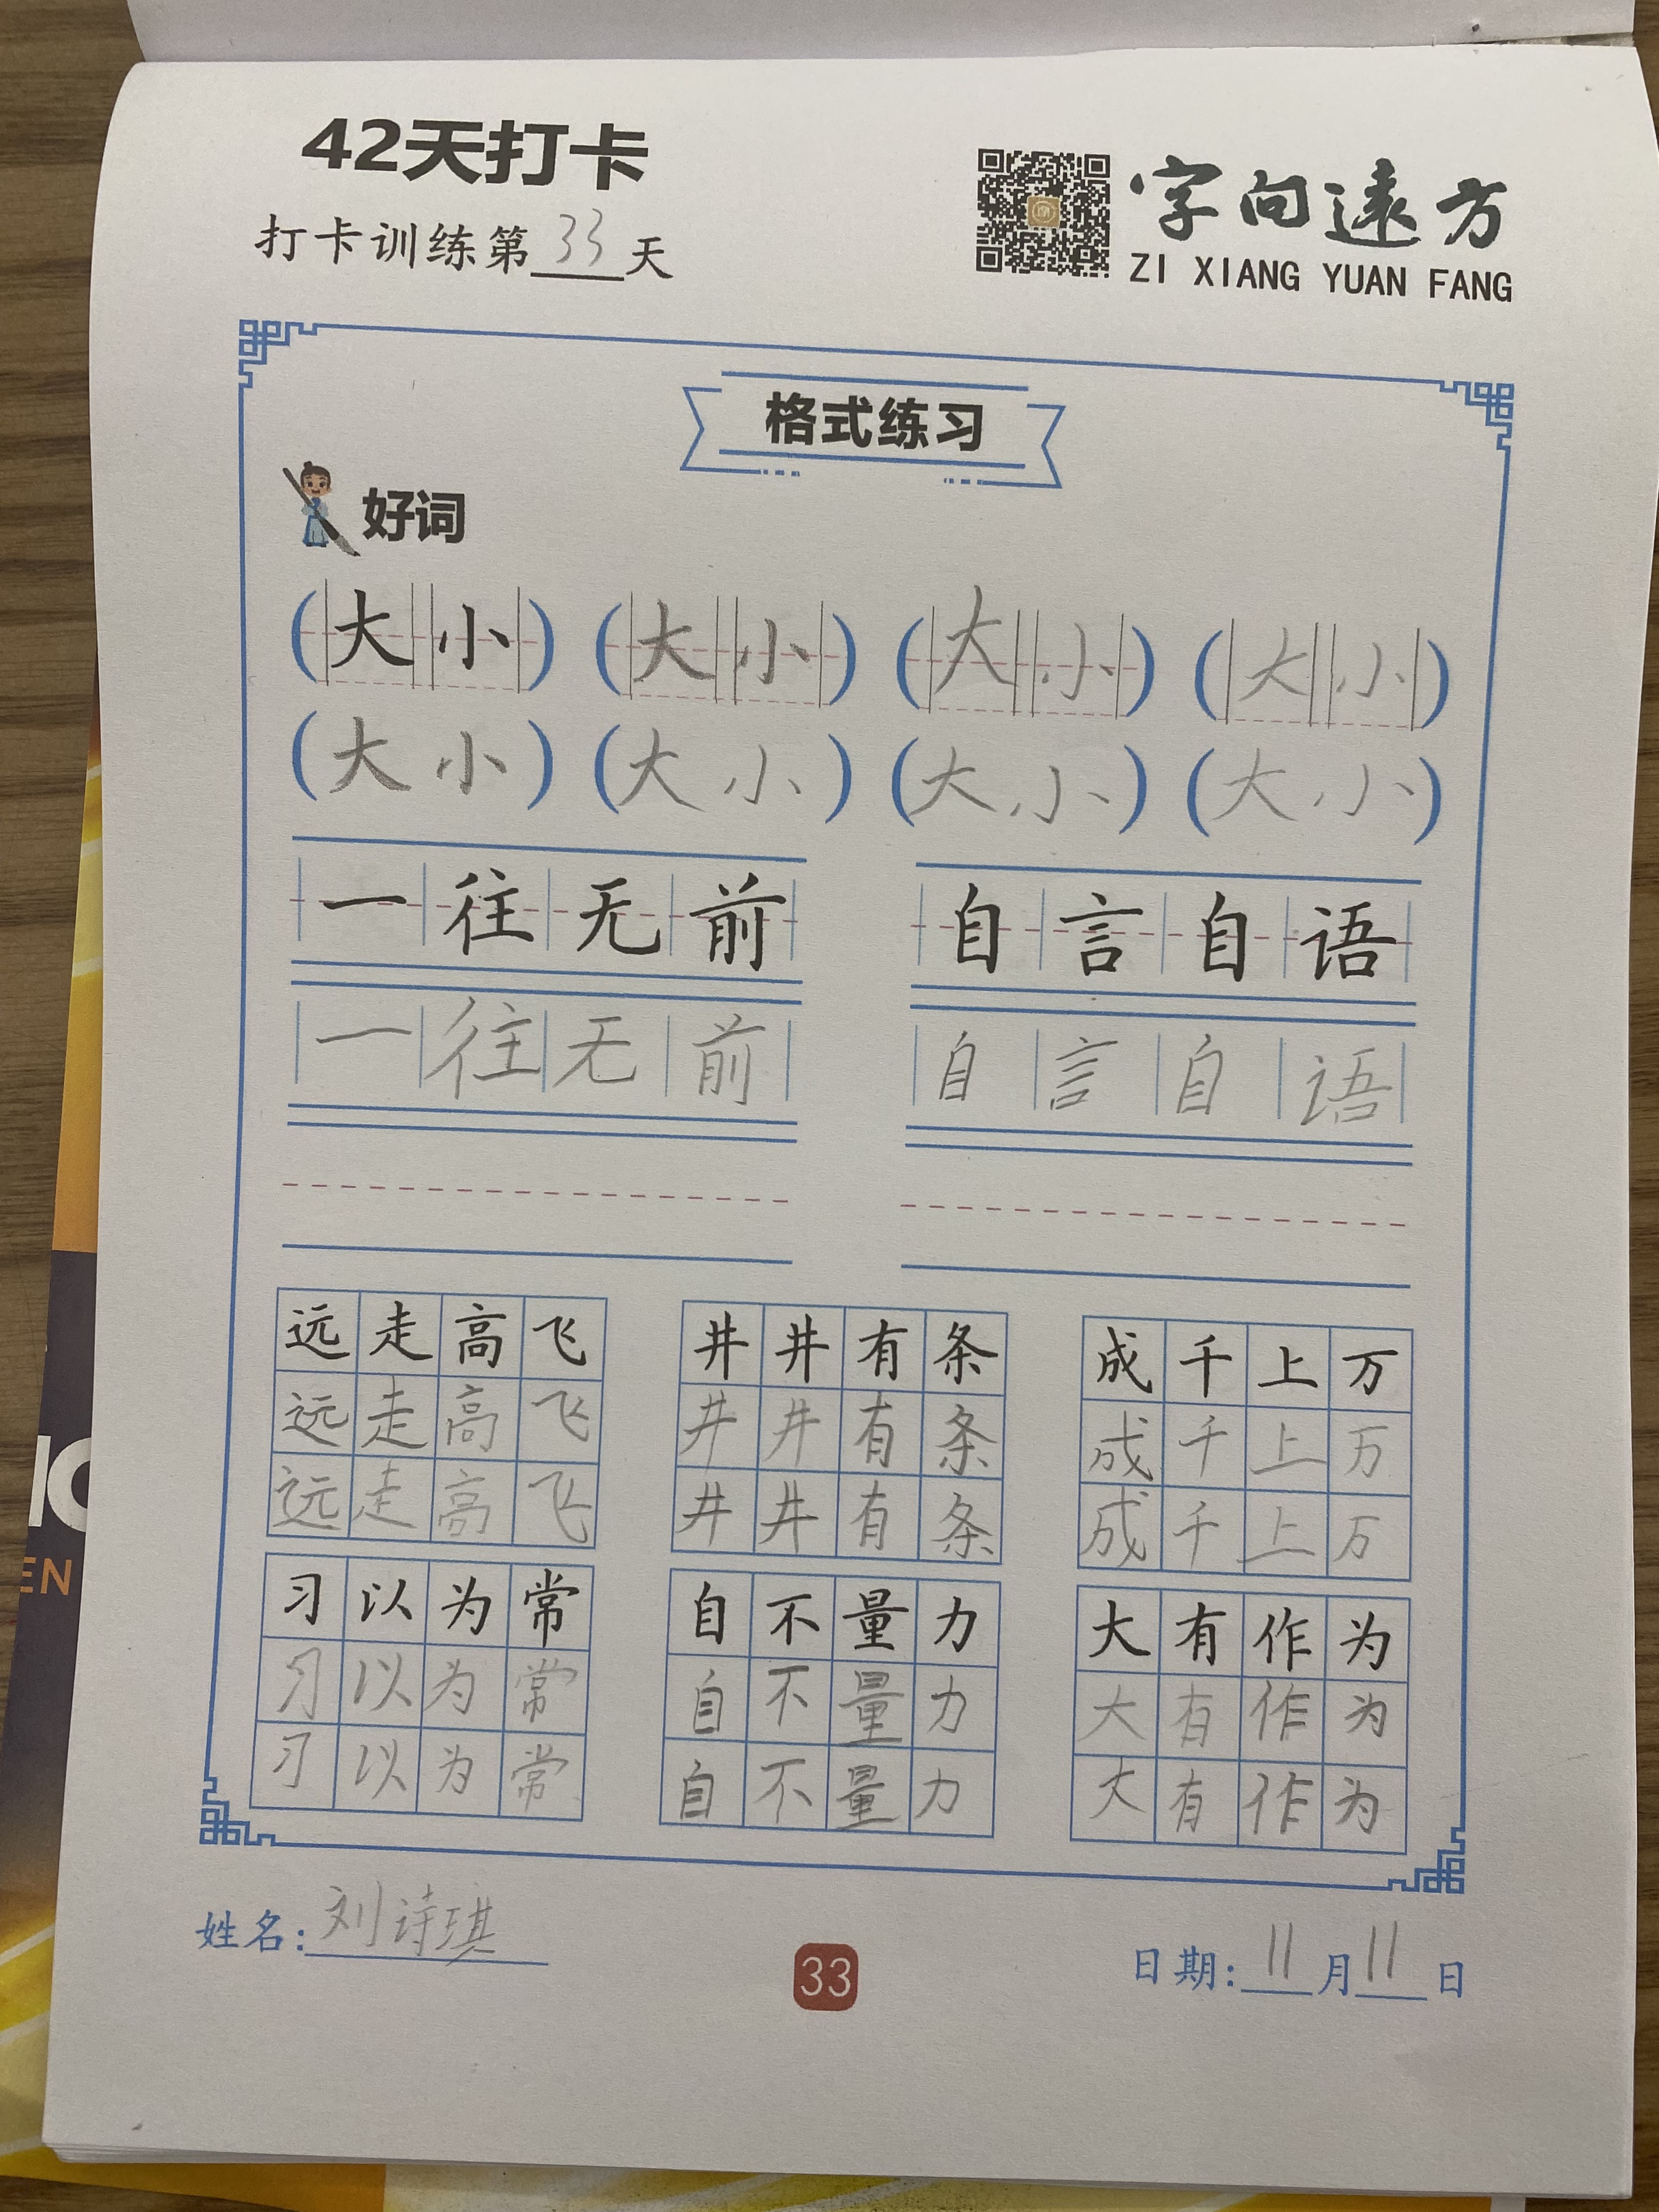 42天打卡
打卡训练第33天
字向遠方
ZI XIANG YUAN FANG
格式练习
好词
(大小) (大小) (大小) (大小)
(大小) (大小) (大小) (大小)
一往无前 自言自语
一往无前 自言自语
远走高飞 井井有条 成千上万
远走高飞 井井有条 成千上万
远走高飞 井井有条 成千上万
习以为常 自不量力 大有作为
习以为常 自不量力 大有作为
习以为常 自不量力 大有作为
姓名:刘诗琪
33
日期:11月11日
EN